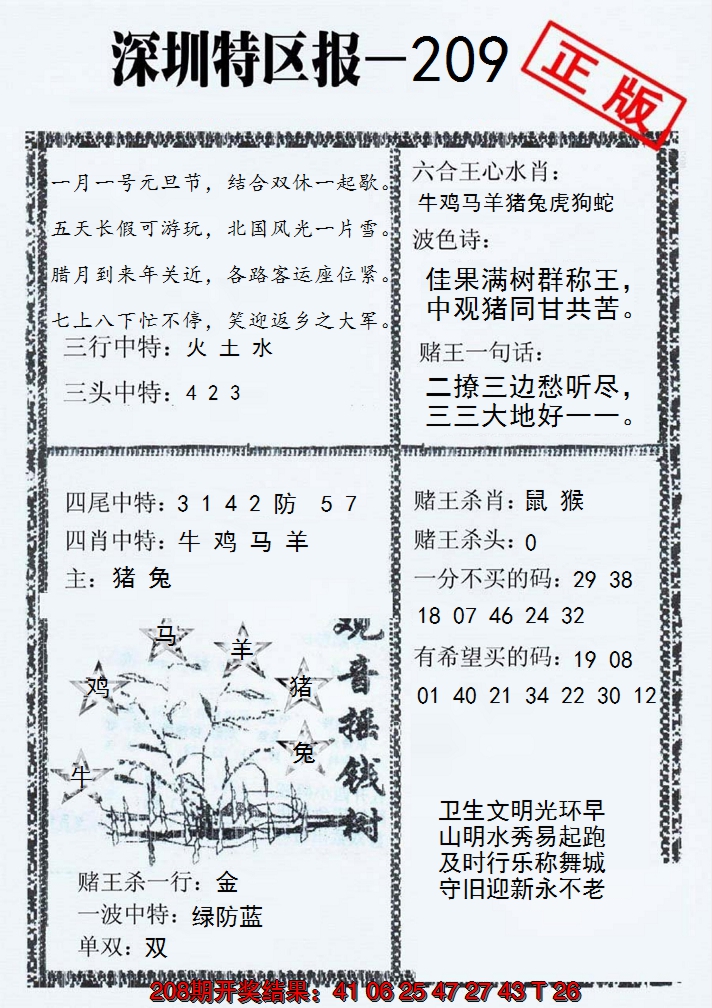 深圳特区报—209
正版
一月一号元旦节，结合双休一起歇。
五天长假可游玩，北国风光一片雪。
腊月到来年关近，各路客运座位紧。
七上八下忙不停，笑迎返乡之大军。
三行中特：火 土 水
三头中特：4 2 3
六合王心水肖：
牛鸡马羊猪兔虎狗蛇
波色诗：
佳果满树群称王，
中观猪同甘共苦。
赌王一句话：
二撩三边愁听尽，
三三大地好一一。
四尾中特：3 1 4 2 防 5 7
四肖中特：牛 鸡 马 羊
主：猪 兔
马
羊
鸡
猪
兔
牛
观音摇钱树
赌王杀一行：金
一波中特：绿防蓝
单双：双
赌王杀肖：鼠 猴
赌王杀头：0
一分不买的码：29 38
18 07 46 24 32
有希望买的码：19 08
01 40 21 34 22 30 12
卫生文明光环早
山明水秀易起跑
及时行乐称舞城
守旧迎新永不老
208期开奖结果：41 06 25 47 27 43 T 26